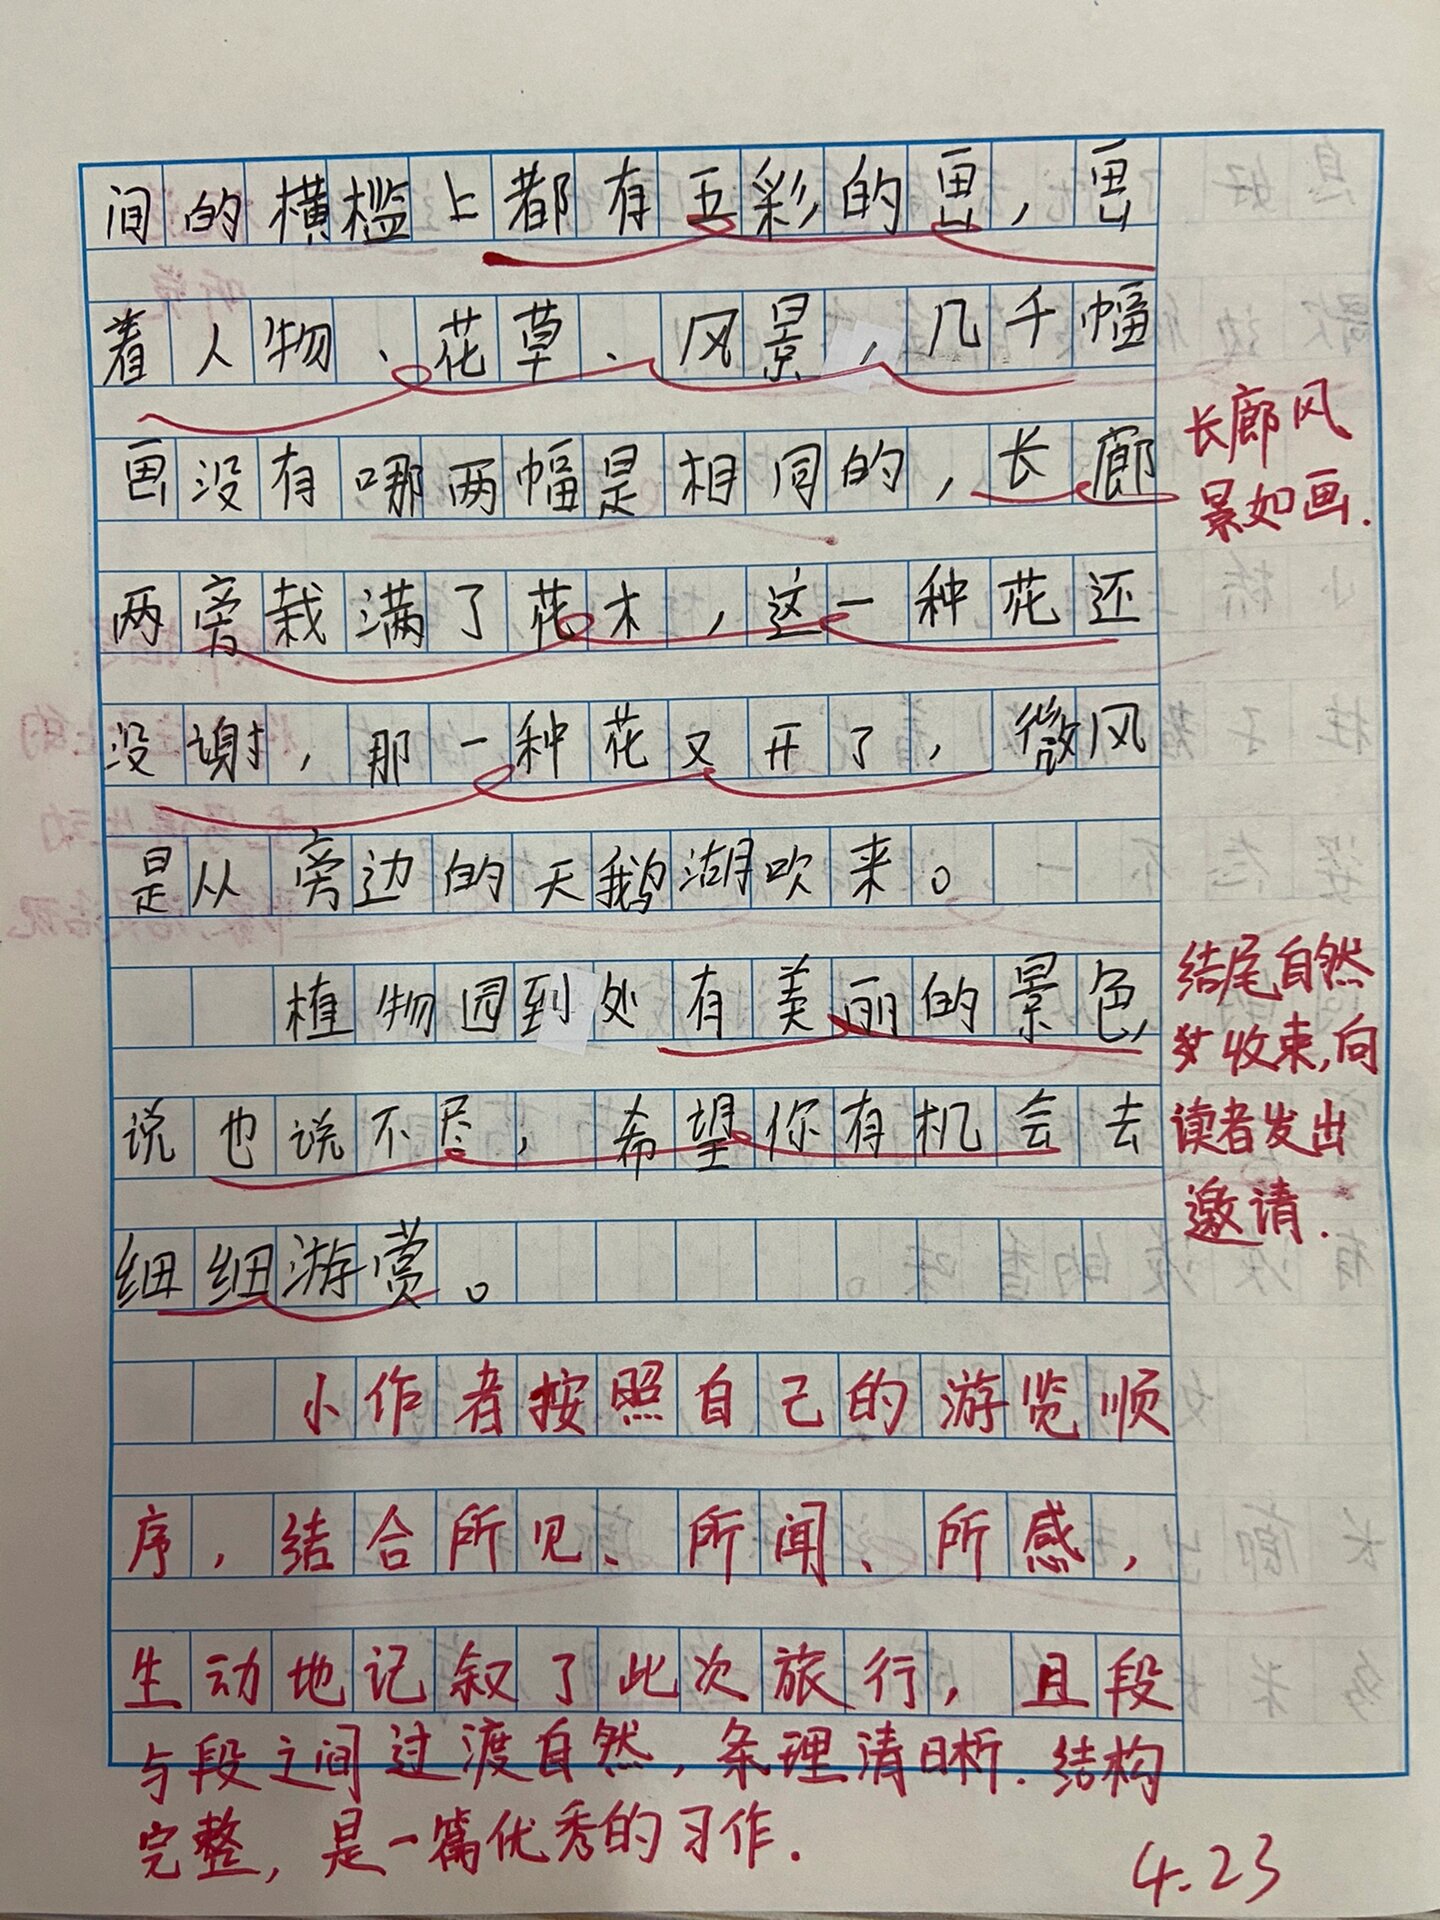 间的横槛上都有五彩的画，画
着人物、花草、风景，几千幅
画没有哪两幅是相同的，长廊
长廊风
景如画.
两旁栽满了花木，这一种花还
没谢，那一种花又开了，微风
是从旁边的天鹅湖吹来。
植物园到处有美丽的景色，
结尾自然
收束,向
读者发出
邀请.
说也说不尽，希望你有机会去
细细游赏。
小作者按照自己的游览顺
序，结合所见、所闻、所感，
生动地记叙了此次旅行，且段
与段之间过渡自然，条理清晰.结构
完整，是一篇优秀的习作.
4.23